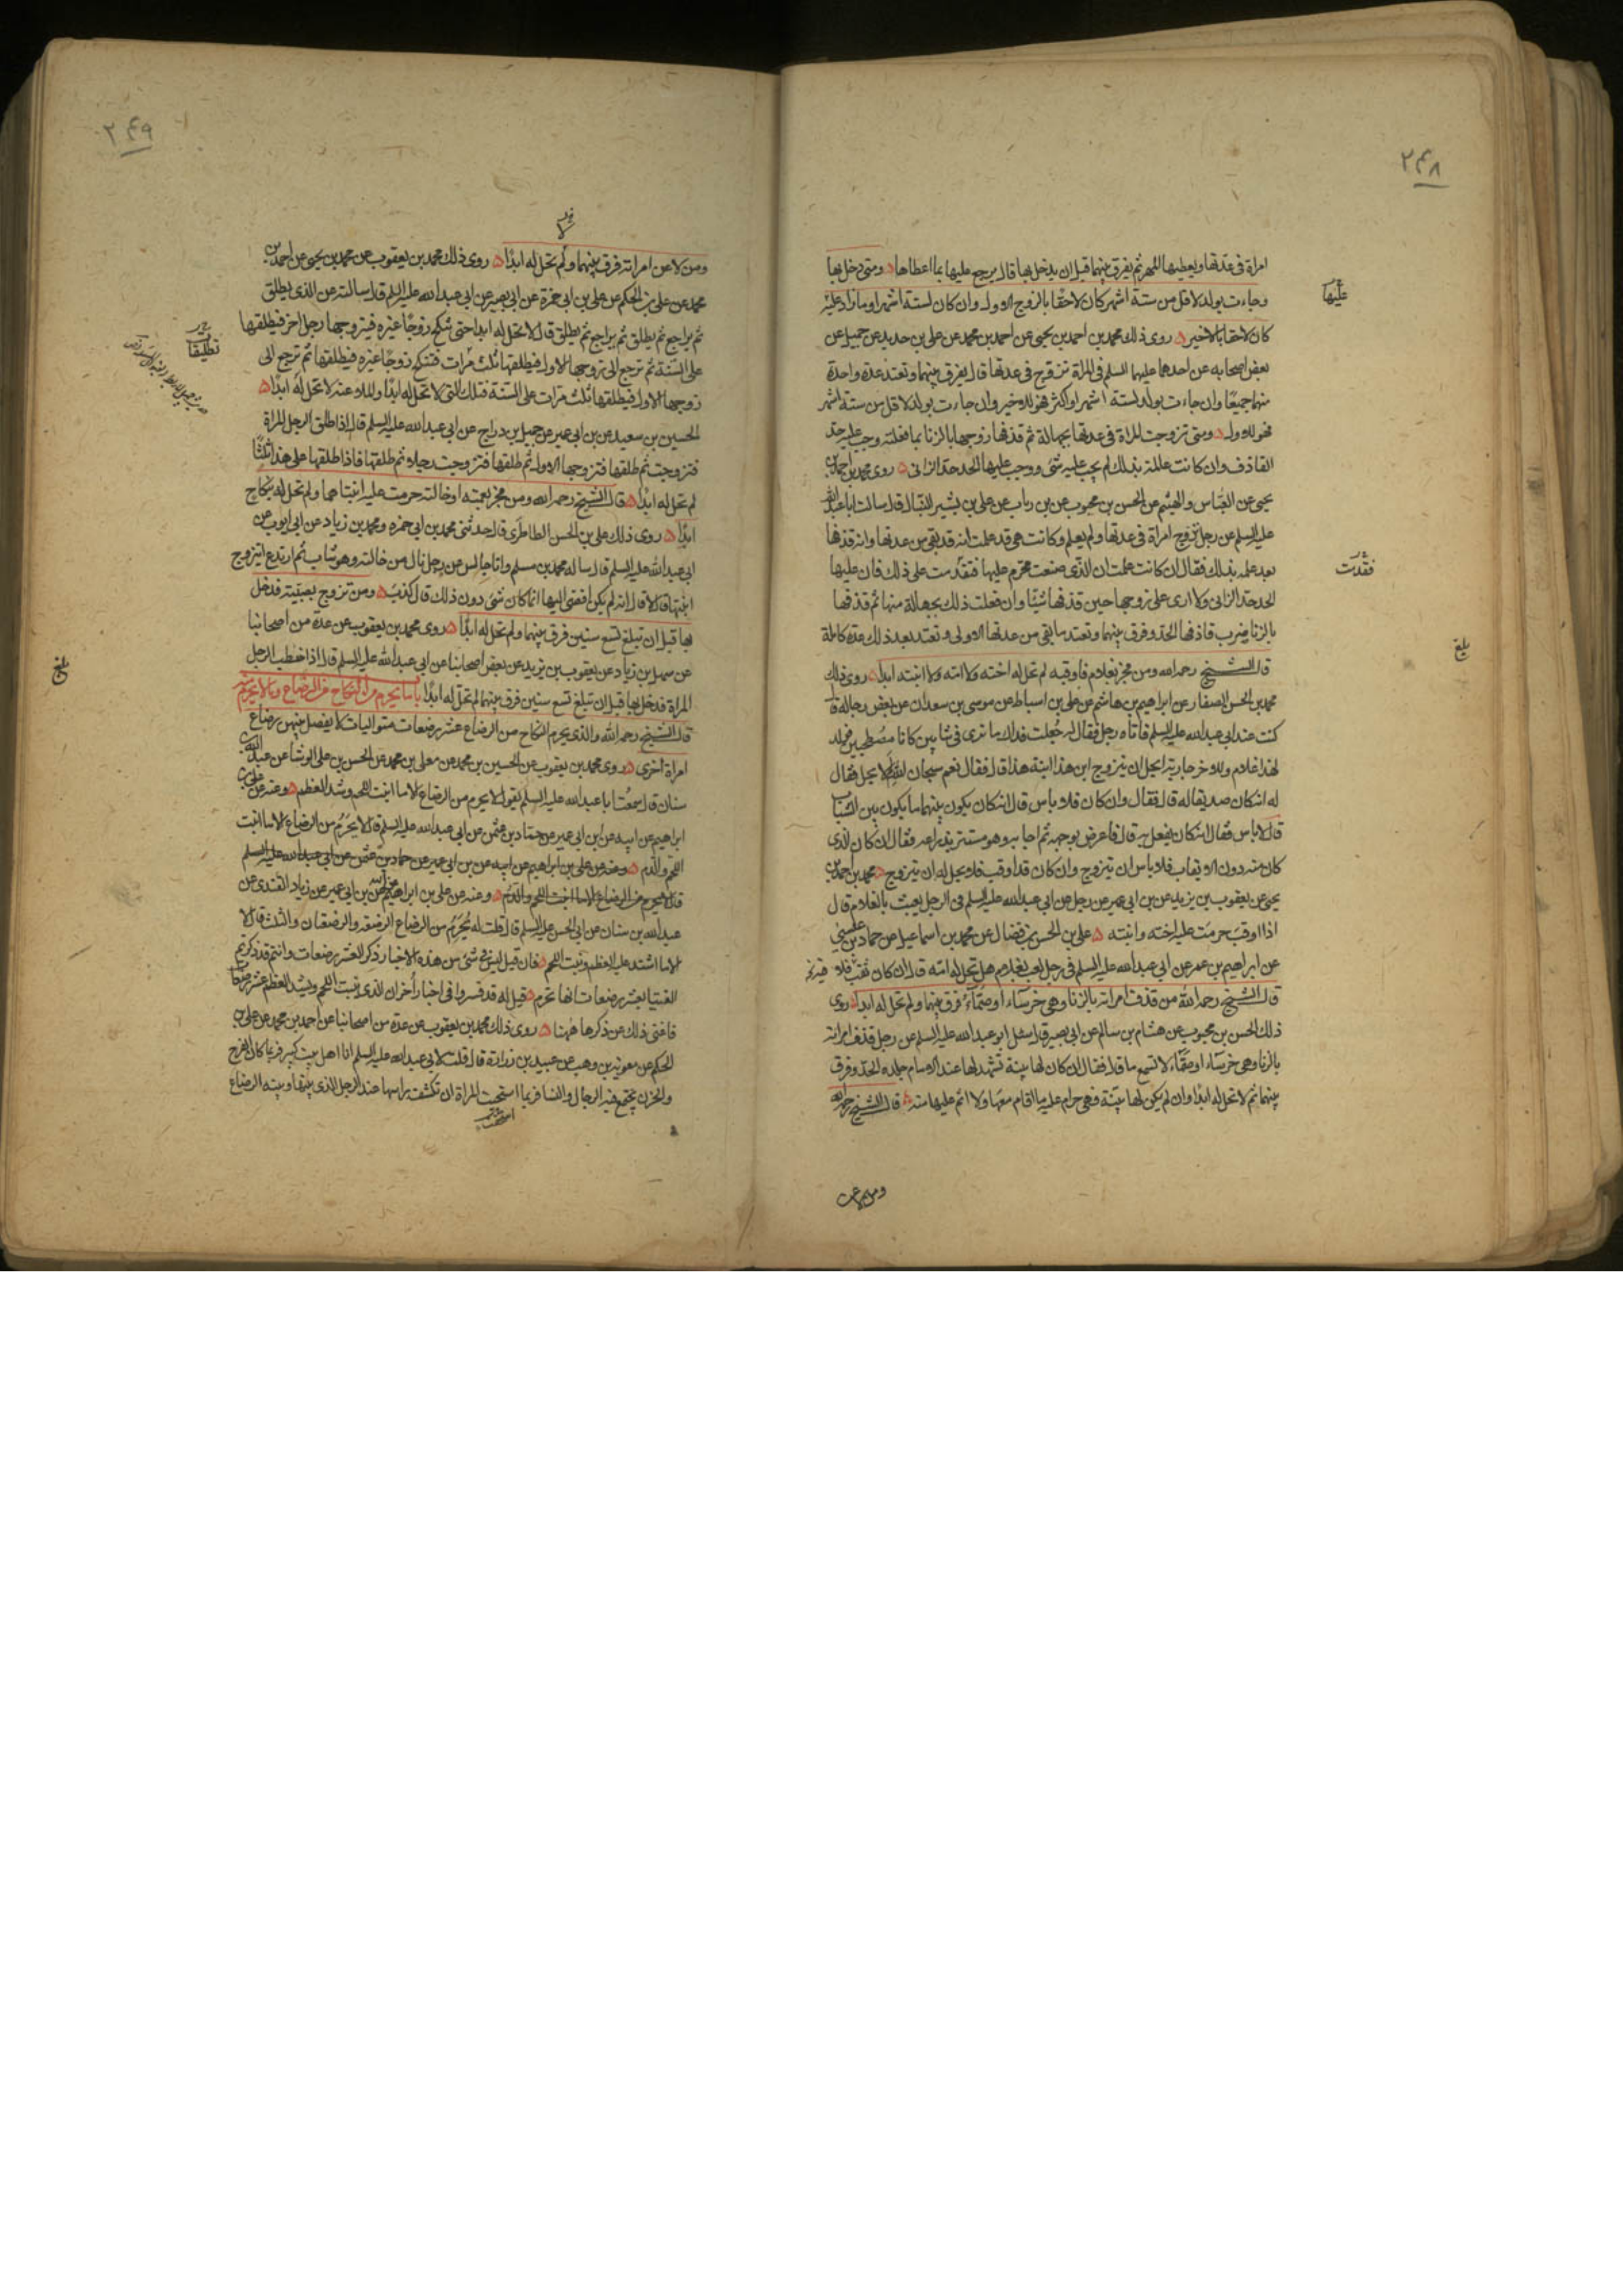 ۲۴۸
امراة فی عدتها ویعطیها المهر ثم یفرق بینهما قبل ان یدخل بها قال یرجع علیها بما اعطاها ومتی دخل بها
وجاءت بولد لاقل من ستة اشهر کان لاحقا بالزوج الاول وان کان لستة اشهر او ما زاد علیه
علیها
کان لاحقا بالاخیر روی ذلک محمد بن احمد بن یحیی عن احمد بن محمد عن علی بن حدید عن جمیل عن
بعض اصحابه عن احدهما علیهما السلم فی المراة تتزوج فی عدتها قال یفرق بینهما وتعتد عدة واحدة
منهما جمیعا وان جاءت بولد لستة اشهر او اکثر فهو للاخیر وان جاءت بولد لاقل من ستة اشهر
فهو للاول ومتی تزوجت المراة فی عدتها بجهالة ثم قذفها زوجها بالزنا بما فعلته وجب علیه حد
القاذف وان کانت عالمة بذلک لم یجب علیه شئ ووجب علیها الحد حد الزانی روی محمد بن احمد بن
یحیی عن العباس والهیثم عن الحسن بن محبوب عن بن رباب عن علی بن بشیر النبال قال سالت ابا عبد الله
علیه السلم عن رجل تزوج امراة فی عدتها ولم یعلم وکانت هی قد علمت انه قد بقی من عدتها وانه قذفها
بعد علمه بذلک فقال ان کانت علمت ان الذی صنعت محرم علیها فقدمت علی ذلک فان علیها
فقدمت
الحد حد الزانی ولا اری علی زوجها حین قذفها شیئا وان فعلت ذلک بجهالة منها ثم قذفها
بالزنا ضرب قاذفها الحد وفرق بینهما وتعتد ما بقی من عدتها الاولی وتعتد بعد ذلک عدة کاملة
بلغ
قال الشیخ رحمه الله ومن فجر بغلام فاوقبه لم تحل له اخته ولا امه ولا ابنته ابدا روی ذلک
محمد بن الحسن الصفار عن ابراهیم بن هاشم عن علی بن اسباط عن موسی بن سعدان عن بعض رجاله قال
کنت عند ابی عبد الله علیه السلم فاتاه رجل فقال له جعلت فداک ما تری فی شابین کانا مصطحبین فولد
لهذا غلام وللاخر جاریة ایحل ان یتزوج ابن هذا ابنة هذا قال فقال نعم سبحان الله لم لا یحل فقال
له انه کان صدیقا له قال فقال وان کان فلا باس قال انه کان یکون بینهما ما یکون بین الشباب
قال لا باس فقال انه کان یفعل به قال فاعرض بوجهه ثم اجابه وهو مستتر بذراعه فقال ان کان الذی
کان منه دون الایقاب فلا باس ان یتزوج وان کان قد اوقب فلا یحل له ان یتزوج محمد بن احمد بن
یحیی عن یعقوب بن یزید عن بن ابی عمیر عن رجل عن ابی عبد الله علیه السلم فی الرجل یعبث بالغلام قال
اذا اوقب حرمت علیه اخته وابنته علی بن الحسن بن فضال عن محمد بن اسماعیل عن حماد بن عیسی
عن ابراهیم بن عمر عن ابی عبد الله علیه السلم فی رجل لعب بغلام هل تحل له امه قال ان کان ثقب فلا
قال الشیخ رحمه الله من قذف امراته بالزنا وهی خرساء او صماء فرق بینهما ولم تحل له ابدا روی
ذلک الحسن بن محبوب عن هشام بن سالم عن ابی بصیر قال سئل ابو عبد الله علیه السلم عن رجل قذف امراته
بالزنا وهی خرساء او صماء لا تسمع ما قال فقال ان کان لها بینة تشهد لها عند الامام جلده الحد وفرق
بینهما ثم لا تحل له ابدا وان لم یکن لها بینة فهی حرام علیه ما اقام معها ولا اثم علیها منه قال الشیخ رحمه الله
ومن لاعن
۲۴۹
ومن لاعن امراته فرق بینهما ولم تحل له ابدا روی ذلک محمد بن یعقوب عن محمد بن یحیی عن احمد بن
محمد عن علی بن الحکم عن علی بن ابی حمزة عن ابی بصیر عن ابی عبد الله علیه السلم قال سالته عن الذی یطلق
ثم یراجع ثم یطلق ثم یراجع ثم یطلق قال لا تحل له ابدا حتی تنکح زوجا غیره فیتزوجها رجل اخر فیطلقها
تطلیقات
علی السنة ثم ترجع الی زوجها الاول فیطلقها ثلث مرات فتنکح زوجا غیره فیطلقها ثم ترجع الی
زوجها الاول فیطلقها ثلث مرات علی السنة فتلک التی لا تحل له ابدا والملاعنة لا تحل له ابدا
الحسین بن سعید عن بن ابی عمیر عن جمیل بن دراج عن ابی عبد الله علیه السلم قال اذا طلق الرجل المراة
فتزوجت ثم طلقها فتزوجها الاول ثم طلقها فتزوجت رجلا ثم طلقها فاذا طلقها علی هذا ثلثا
لم تحل له ابدا قال الشیخ رحمه الله ومن فجر بعمته او خالته حرمت علیه ابنتاهما ولم تحل له بنکاح
ابدا روی ذلک علی بن الحسن الطاطری قال حدثنی محمد بن ابی حمزه ومحمد بن زیاد عن ابی ایوب عن
ابی عبد الله علیه السلم قال ساله محمد بن مسلم وانا جالس عن رجل نال من خالته وهو شاب ثم ارتدع ایتزوج
ابنتها قال لا قال انه لم یکن افضی الیها انما کان شئ دون ذلک قال کذب ومن تزوج بصبیة فدخل
بها قبل ان تبلغ تسع سنین فرق بینهما ولم تحل له ابدا روی محمد بن یعقوب عن عدة من اصحابنا
عن سهل بن زیاد عن یعقوب بن یزید عن بعض اصحابنا عن ابی عبد الله علیه السلم قال اذا خطب الرجل
بلغ
المراة فدخل بها قبل ان تبلغ تسع سنین فرق بینهما لم تحل له ابدا باب ما یحرم من النکاح من الرضاع وما لا یحرم منه
قال الشیخ رحمه الله والذی یحرم النکاح من الرضاع عشر رضعات متوالیات لا یفصل بینهن رضاع
امراة اخری روی محمد بن یعقوب عن الحسین بن محمد عن معلی بن محمد عن الحسن بن علی الوشا عن عبد الله بن
سنان قال سمعت ابا عبد الله علیه السلم یقول لا یحرم من الرضاع الا ما انبت اللحم وشد العظم وعنه عن علی بن
ابراهیم عن ابیه عن بن ابی عمیر عن حماد بن عثمن عن ابی عبد الله علیه السلم قال لا یحرم من الرضاع الا ما انبت
اللحم والدم وعنه عن علی بن ابراهیم عن ابیه عن بن ابی عمیر عن حماد بن عثمن عن ابی عبد الله علیه السلم
قال لا یحرم من الرضاع الا ما انبت اللحم والدم وعنه عن علی بن ابراهیم عن ابیه عن بن ابی عمیر عن زیاد القندی عن
عبد الله بن سنان عن ابی الحسن علیه السلم قال قلت له یحرم من الرضاع الرضعة والرضعتان والثلث قال لا
الا ما اشتد علیه العظم ونبت اللحم فان قیل لیس فی شئ من هذه الاخبار ذکر العشر رضعات وانتم قد ذکرتم
الفتیا بعشر رضعات انها تحرم قیل له قد فسروا فی اخبار اخر ان الذی ینبت اللحم ویشد العظم عشر رضعات
فاغنی ذلک عن ذکرها ههنا روی ذلک محمد بن یعقوب عن عدة من اصحابنا عن احمد بن محمد عن علی بن
الحکم عن معویة بن وهب عن عبید بن زرارة قال قلت لابی عبد الله علیه السلم انا اهل بیت کبیر فربما کان الفرح
والحزن یجتمع فیه الرجال والنسا فربما استحیت المراة ان تکشف راسها عند الرجل الذی بینها وبینه الرضاع